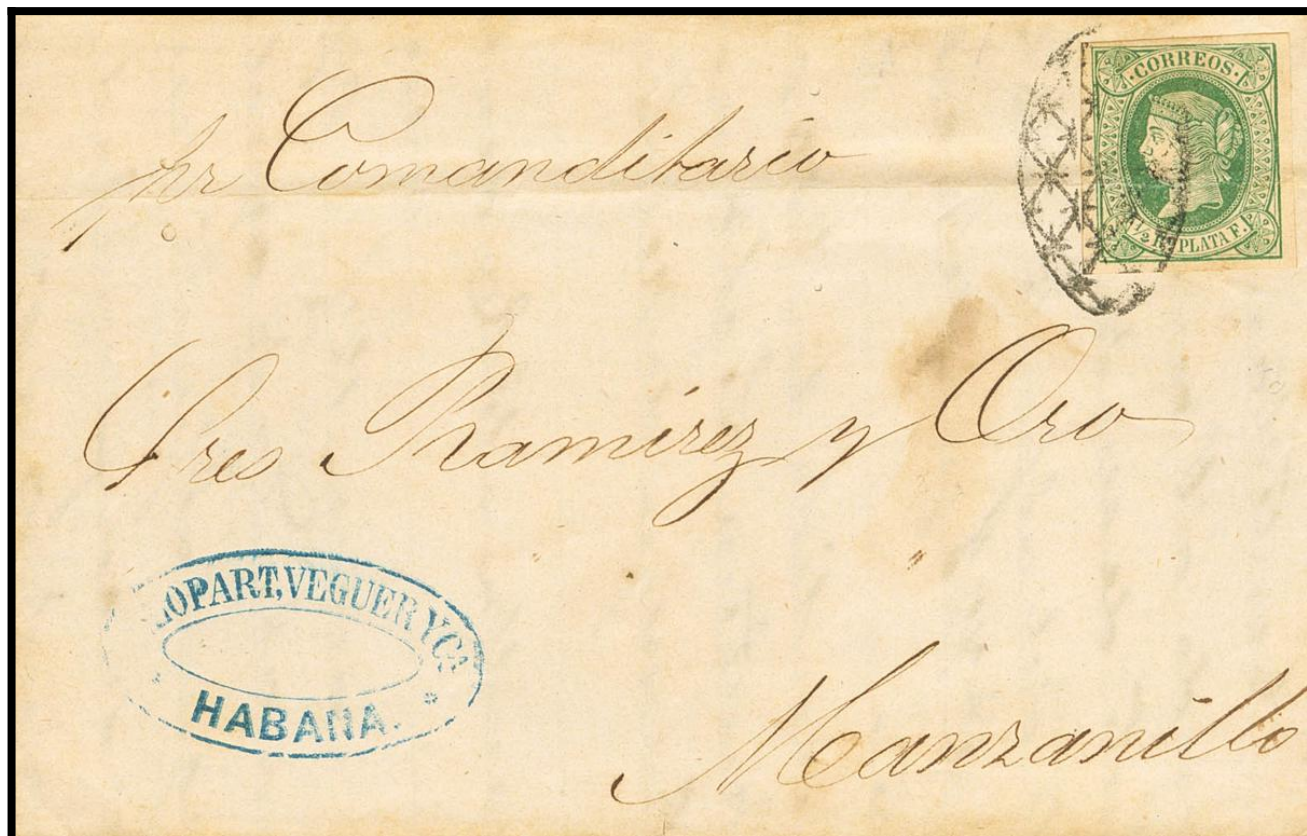 CORREOS
1/2 Rl PLATA F.
pr Comanditario
Sres Ramirez y Oro
LLOPART, VEGUER Y Ca
HABANA.
Manzanillo